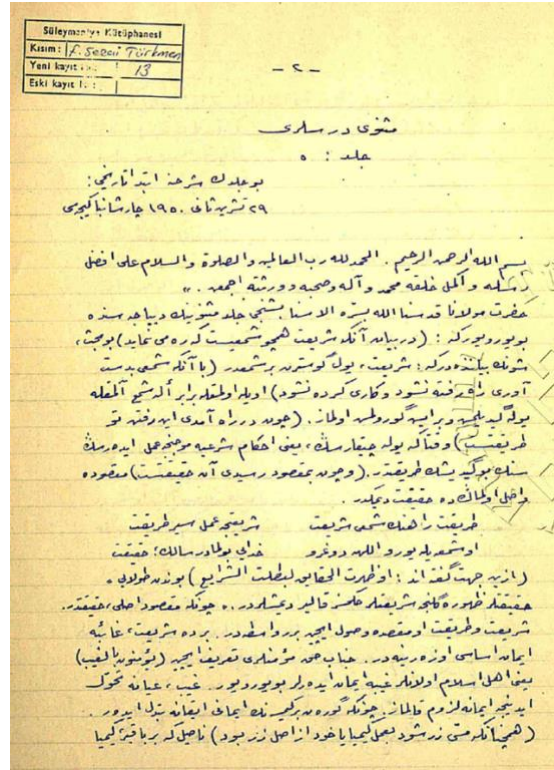 Süleymaniye Kütüphanesi
Kısım: F. Sezai Türkmen
Yeni kayıt 13
Eski kayıt
- ٢ -
مثنوى درسلرى
جلد : ٥
بو جلدك شرحنه ابتدا تاريخى :
٢٩ تشرين ثانى ١٩٥٠ چارشانبا كيجه‌سى
بسم الله الرحمن الرحيم . الحمد لله رب العالمين والصلوة والسلام على افضل
رسله و اكمل خلقه محمد و آله وصحبه وورثته اجمعين .
حضرت مولانا قدسنا الله بسره الاسنا بشنجى جلد مثنوينك ديباجه‌سنده
بويورويوركه : (در بيان آنكه شريعت همچو شمعيست كه ره مى نمايد) بو مبحث،
شونك بياننده‌دركه : شريعت، يول گوسترن بر شمعدر (با آنكه شمعى بدست
آورى راه رفته نشود و كارى كرده نشود) اويله اولمقله برابر أله شمع آلمقله
يوله گيديلمش وبر ايش گورولمش اولماز. (چون در راه آمدى اين رفتن تو
طريقتست) وقتاكه يوله چيقارسڭ، يعنى احكام شرعيه موجبنجه عمل ايدرسڭ
سنڭ بو گيديشڭ طريقتدر. (وچون بمقصود رسيدى آن حقيقتست) مقصوده
واصل اولمالڭ ده حقيقت ديمكدر.
طريقت راهنك شمعى شريعت شريعتجه عمل سير طريقت
او شمعيله يورو اللهه دوغرو خدايى بولمادر سالك؛ حقيقت
(ازين جهت گفته اند : لو ظهرت الحقايق لبطلت الشرايع) بوندن طولايى
حقيقتلر ظهوره گلنجه شريعتلر حكمسز قالير ديمشلردر. چونكه مقصود اصلى، حقيقتدر.
شريعت وطريقت او مقصده وصول ايچين بر واسطه‌در. بر ده شريعت، غائبه
ايمان اساسى اوزرينه‌در. جناب حق مؤمنلرى تعريف ايچين (يؤمنون بالغيب)
يعنى اهل اسلام اولانلر غيبه ايمان ايدرلر بويورويور. غيب، عيانه تحول
ايدنجه ايمانه لزوم قالماز. چونكه گورمن بر كيمسه‌نك ايمانى ايقانه تبدل ايدر.
(همچنانكه مسى زر شود بعمل كيميا يا خود از اصل زر بود) ناصل كه بر باقير، كيميا